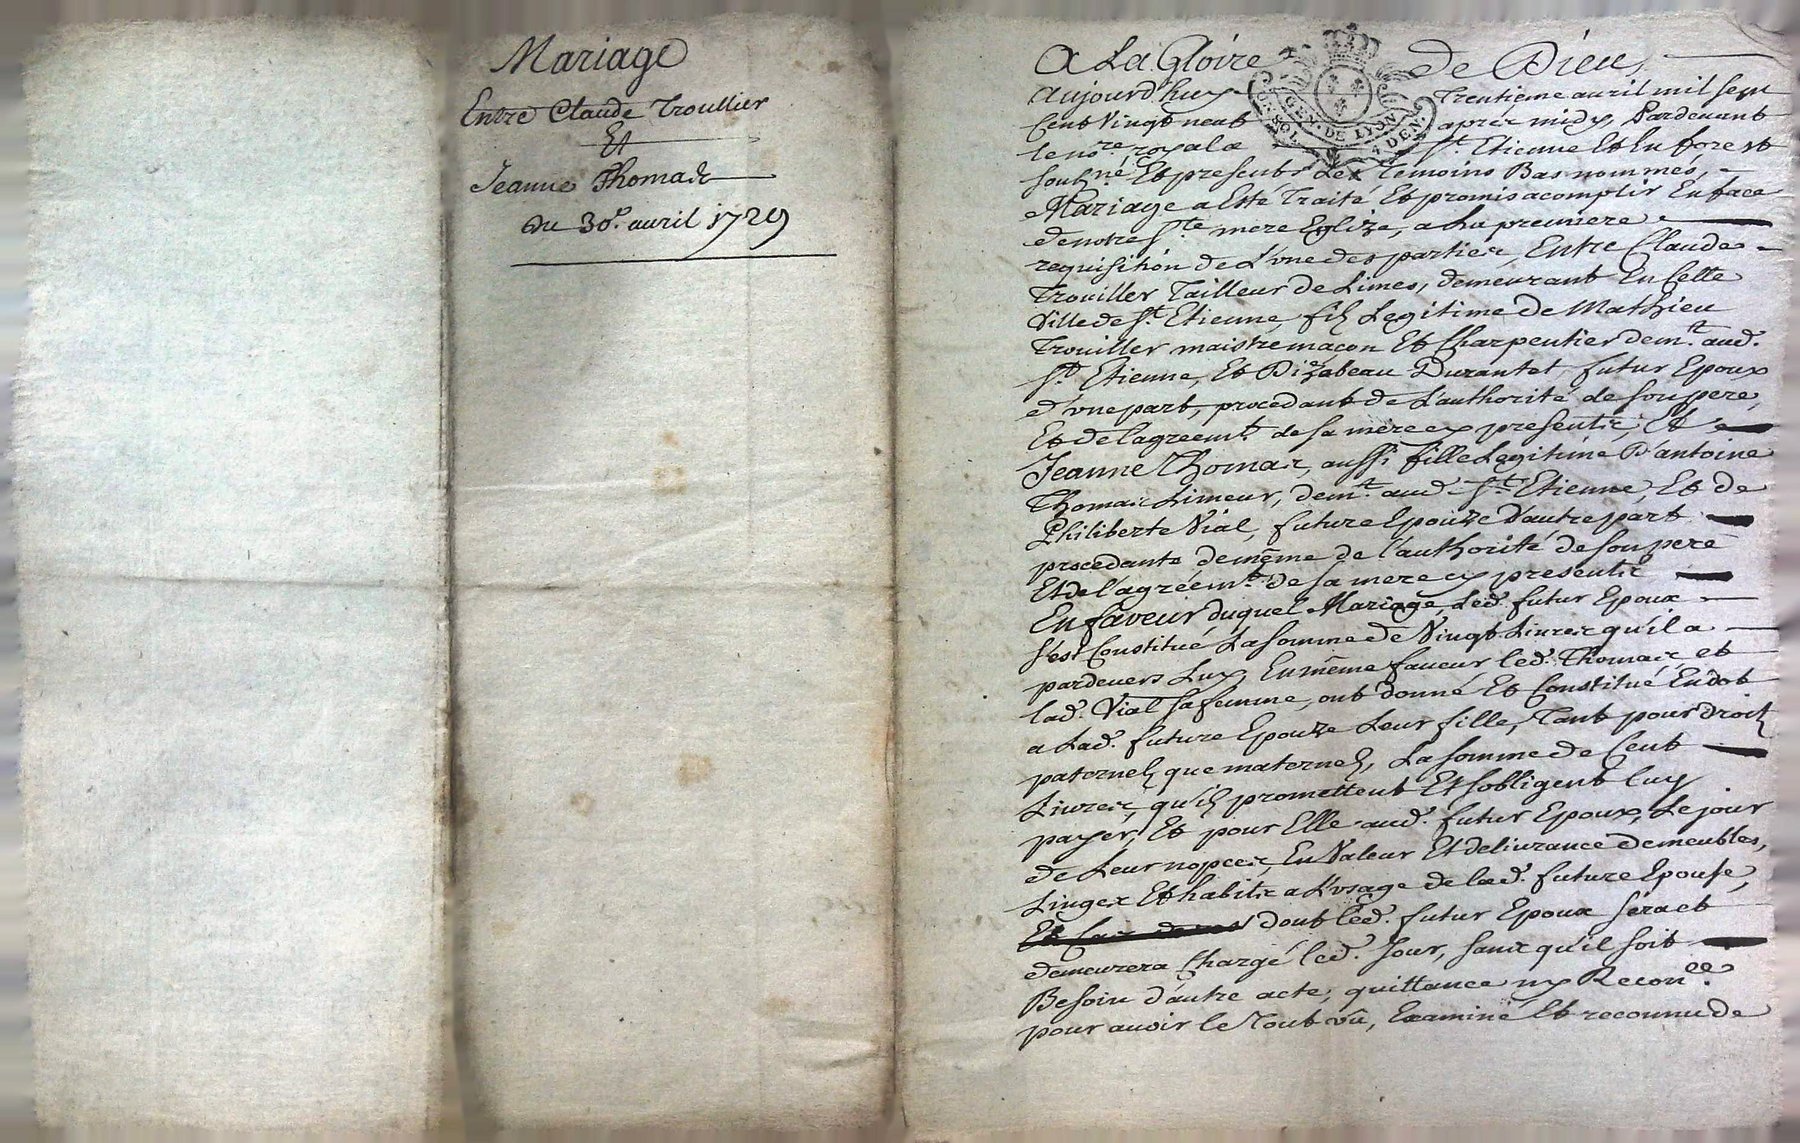 Mariage
Entre Claude Troullier
Et
Jeanne Thomas
du 30e. avril 1729
A La Gloire de Dieu,
Aujourd'huy Trentieme avril mil sept
Cent Vingt neuf apres midy, Pardevant
le nore. royal a St. Etienne Et En forest
soubzné. Et presents Les Temoins Bas nommés,
Mariage a Esté Traité Et promis acomplir En face
de notre Ste mere Eglize, a La premiere
requisition de L'vne des parties, Entre Claude
Trouiller Tailleur de Limes, demeurant En Cette
Ville de St. Etienne, filz Legitime de Mathieu
Trouiller maistre maçon Et Charpentier demt. aud.
St. Etienne, Et Dizabeau Durantet, futur Epoux
d'vne part, procedant de L'authorité de son pere,
Et de l'agreemt. de sa mere cy presents, Et
Jeanne Thomas, aussi fille Legitime D'antoine
Thomas Limeur, demt. aud. St. Etienne, Et de
Philiberte Vial, future Epouze d'autre part
procedante de même de l'authorité de son pere
Et de l'agréemt. de sa mere cy presents
En faveur duquel Mariage, Led. futur Epoux
s'est Constitué La somme de Vingt Livres qu'il a
pardevers Luy, En même faveur led. Thomas et
lad. Vial sa femme, ont donné Et Constitué En dot
a Lad. future Epouze Leur fille, Tant pour droitz
paternelz que maternelz, La somme de Cent
Livres, qu'ilz promettent Et s'obligent luy
payer, Et pour Elle aud. futur Epoux, Le jour
de Leur nopces, En Valeur Et delivrance de meubles,
Linges Et habits a L'vsage de lad. future Epouse,
dont led. futur Epoux sera et
demeurera Chargé led. Jour, sans qu'il soit
Besoin d'autre acte, quittance ny Reconce.
pour avoir le Tout vû, Examiné Et reconnu de
GEN. DE LYON